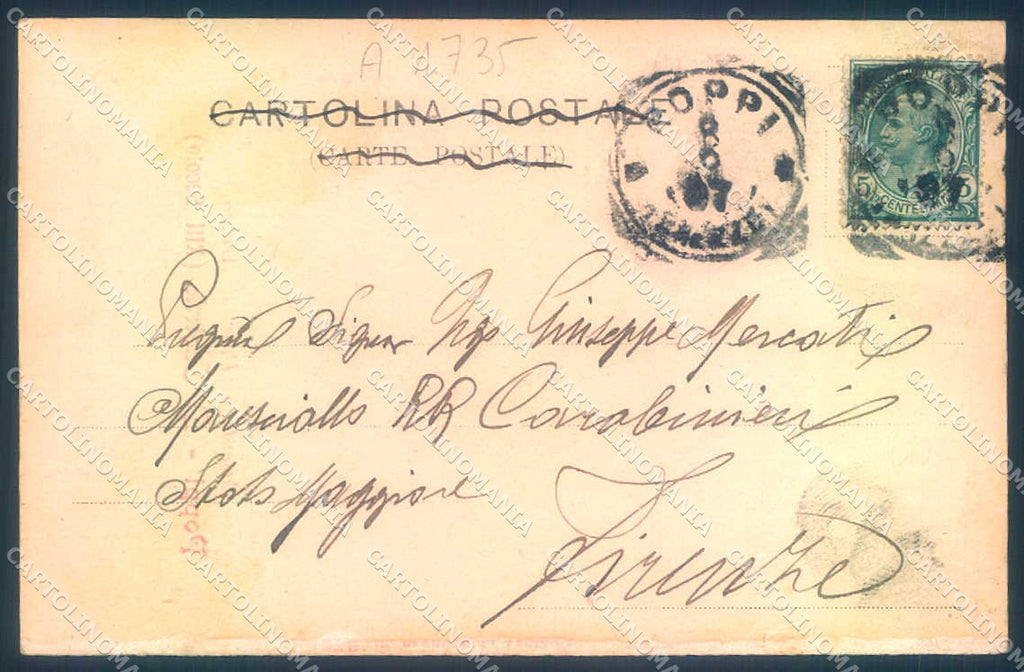 A A735
CARTOLINA POSTALE
(CARTE POSTALE)
POPPI
8
07
AREZZO
5
CENTES
Signor Giuseppe Mercati
Maresciallo RR Carabinieri
Stato Maggiore
Firenze
CARTOLINOMANIA